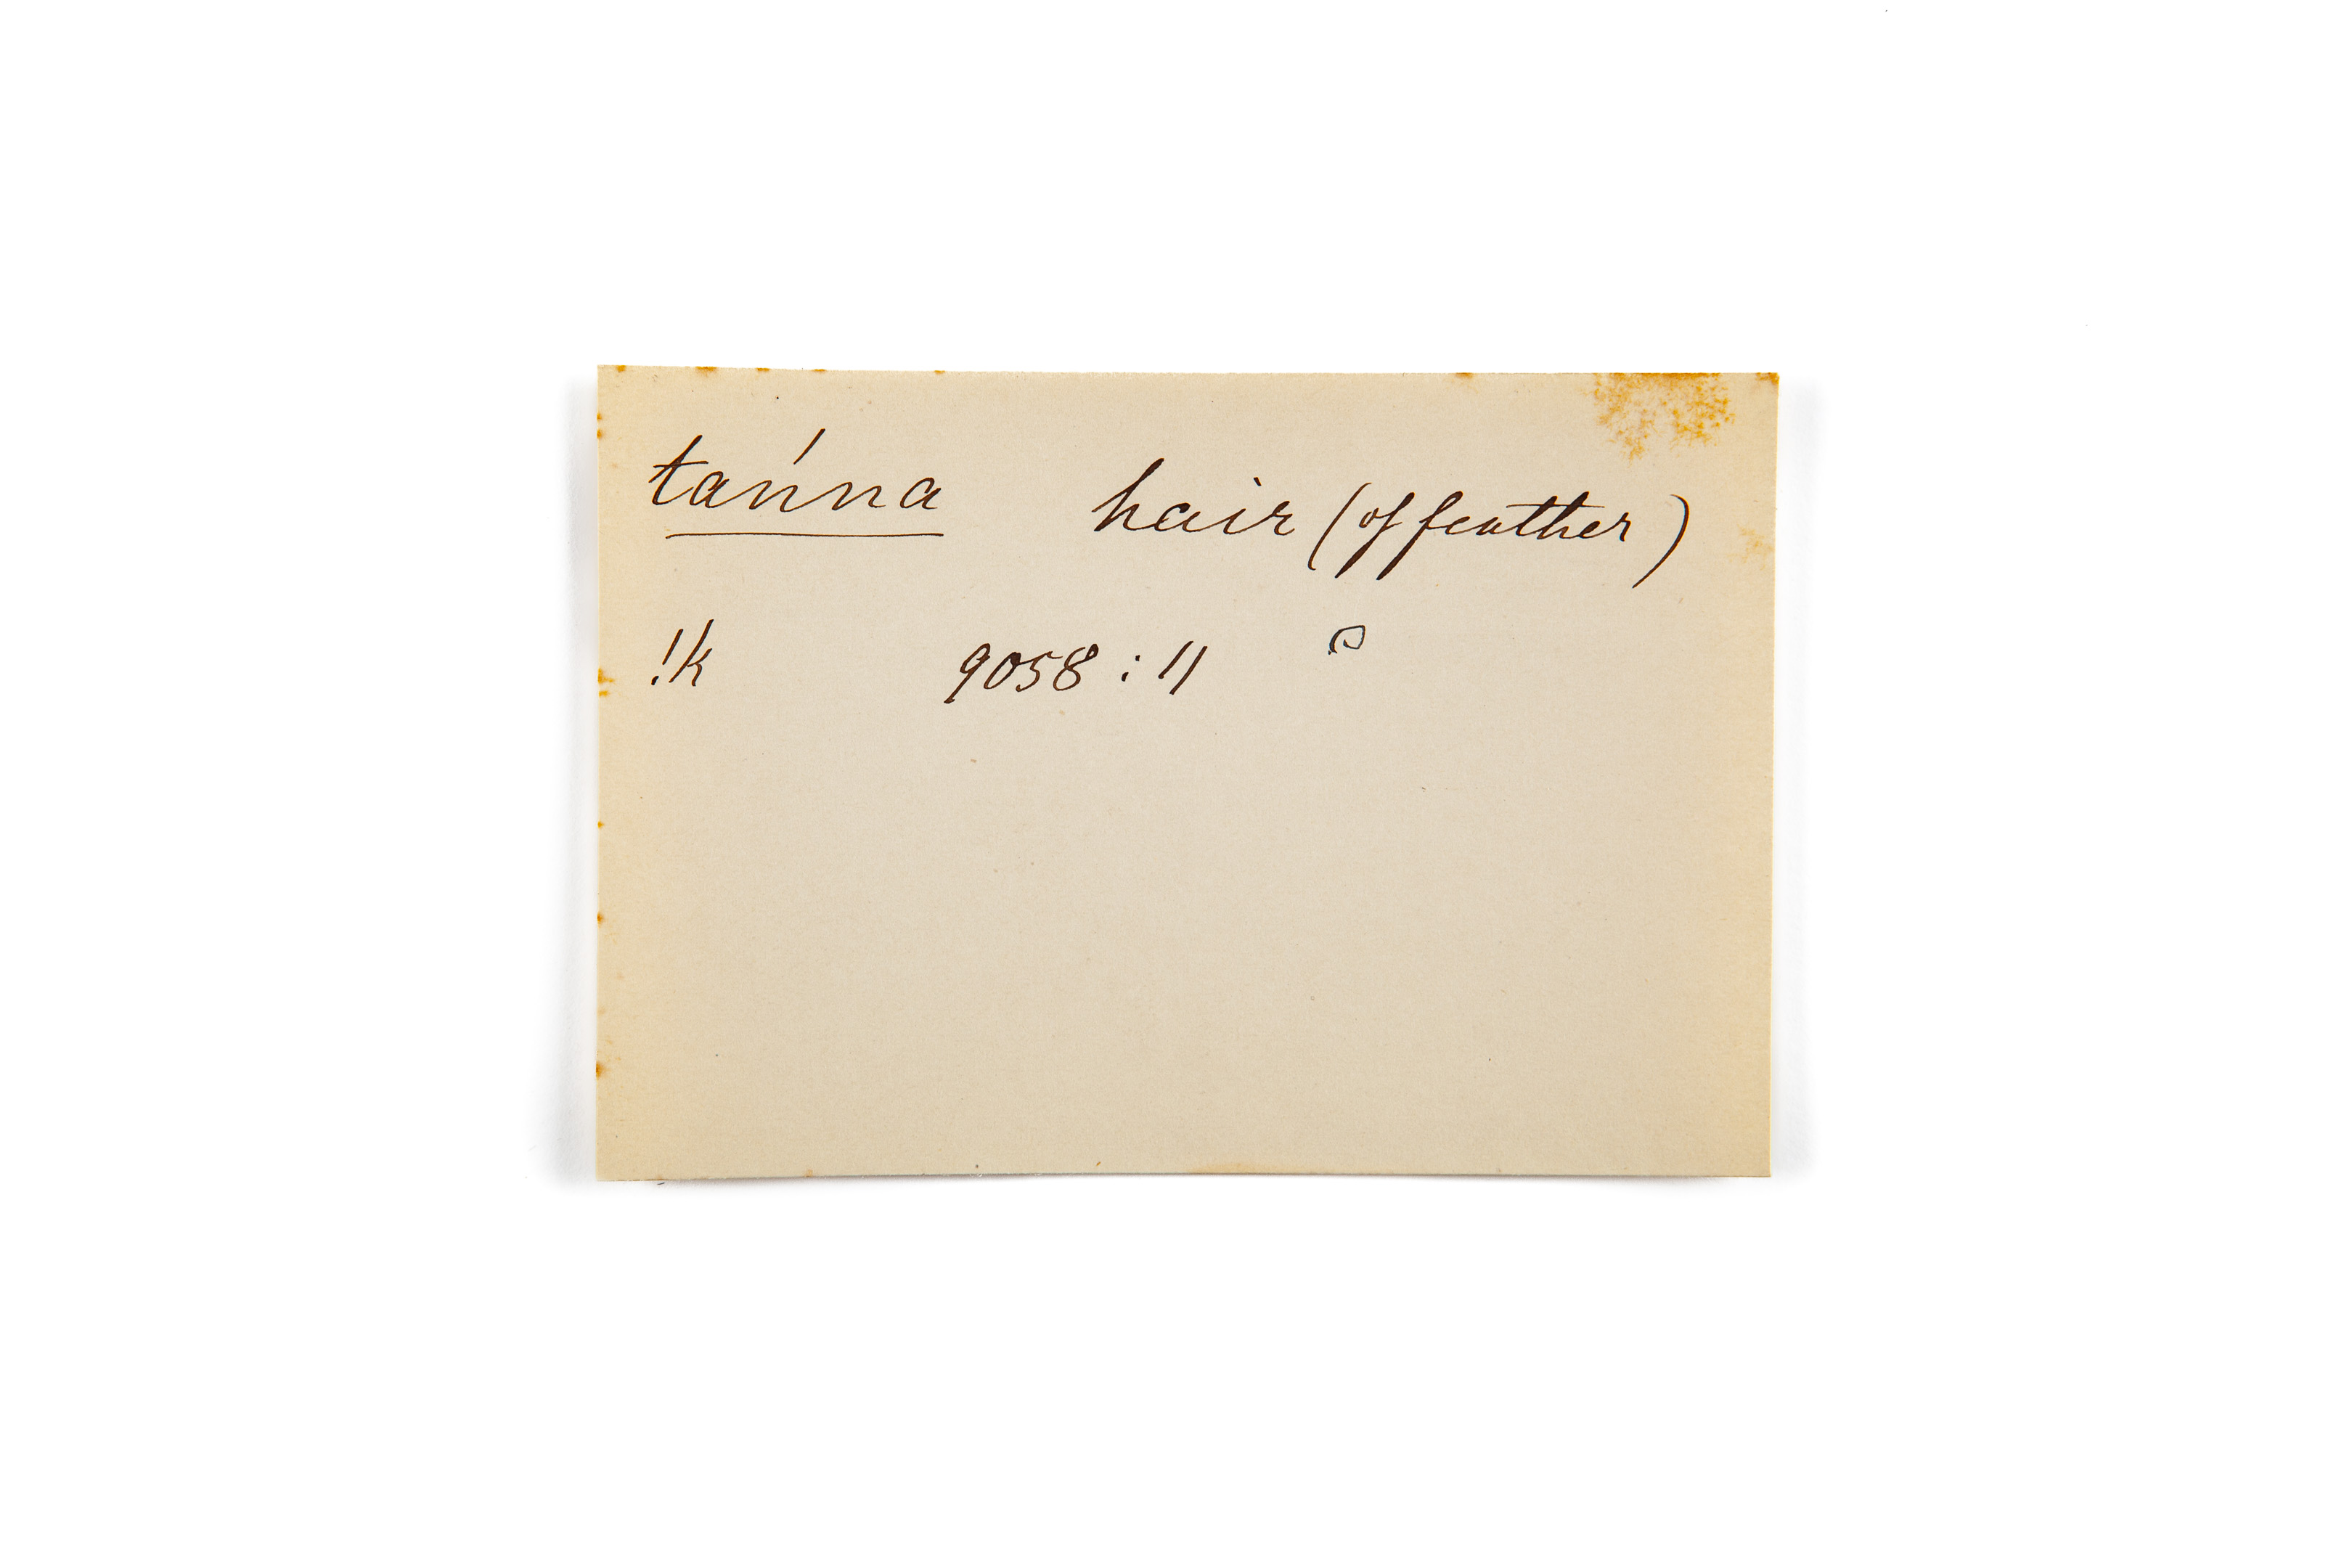 tańna hair (of feather)
!k 9058 : 11